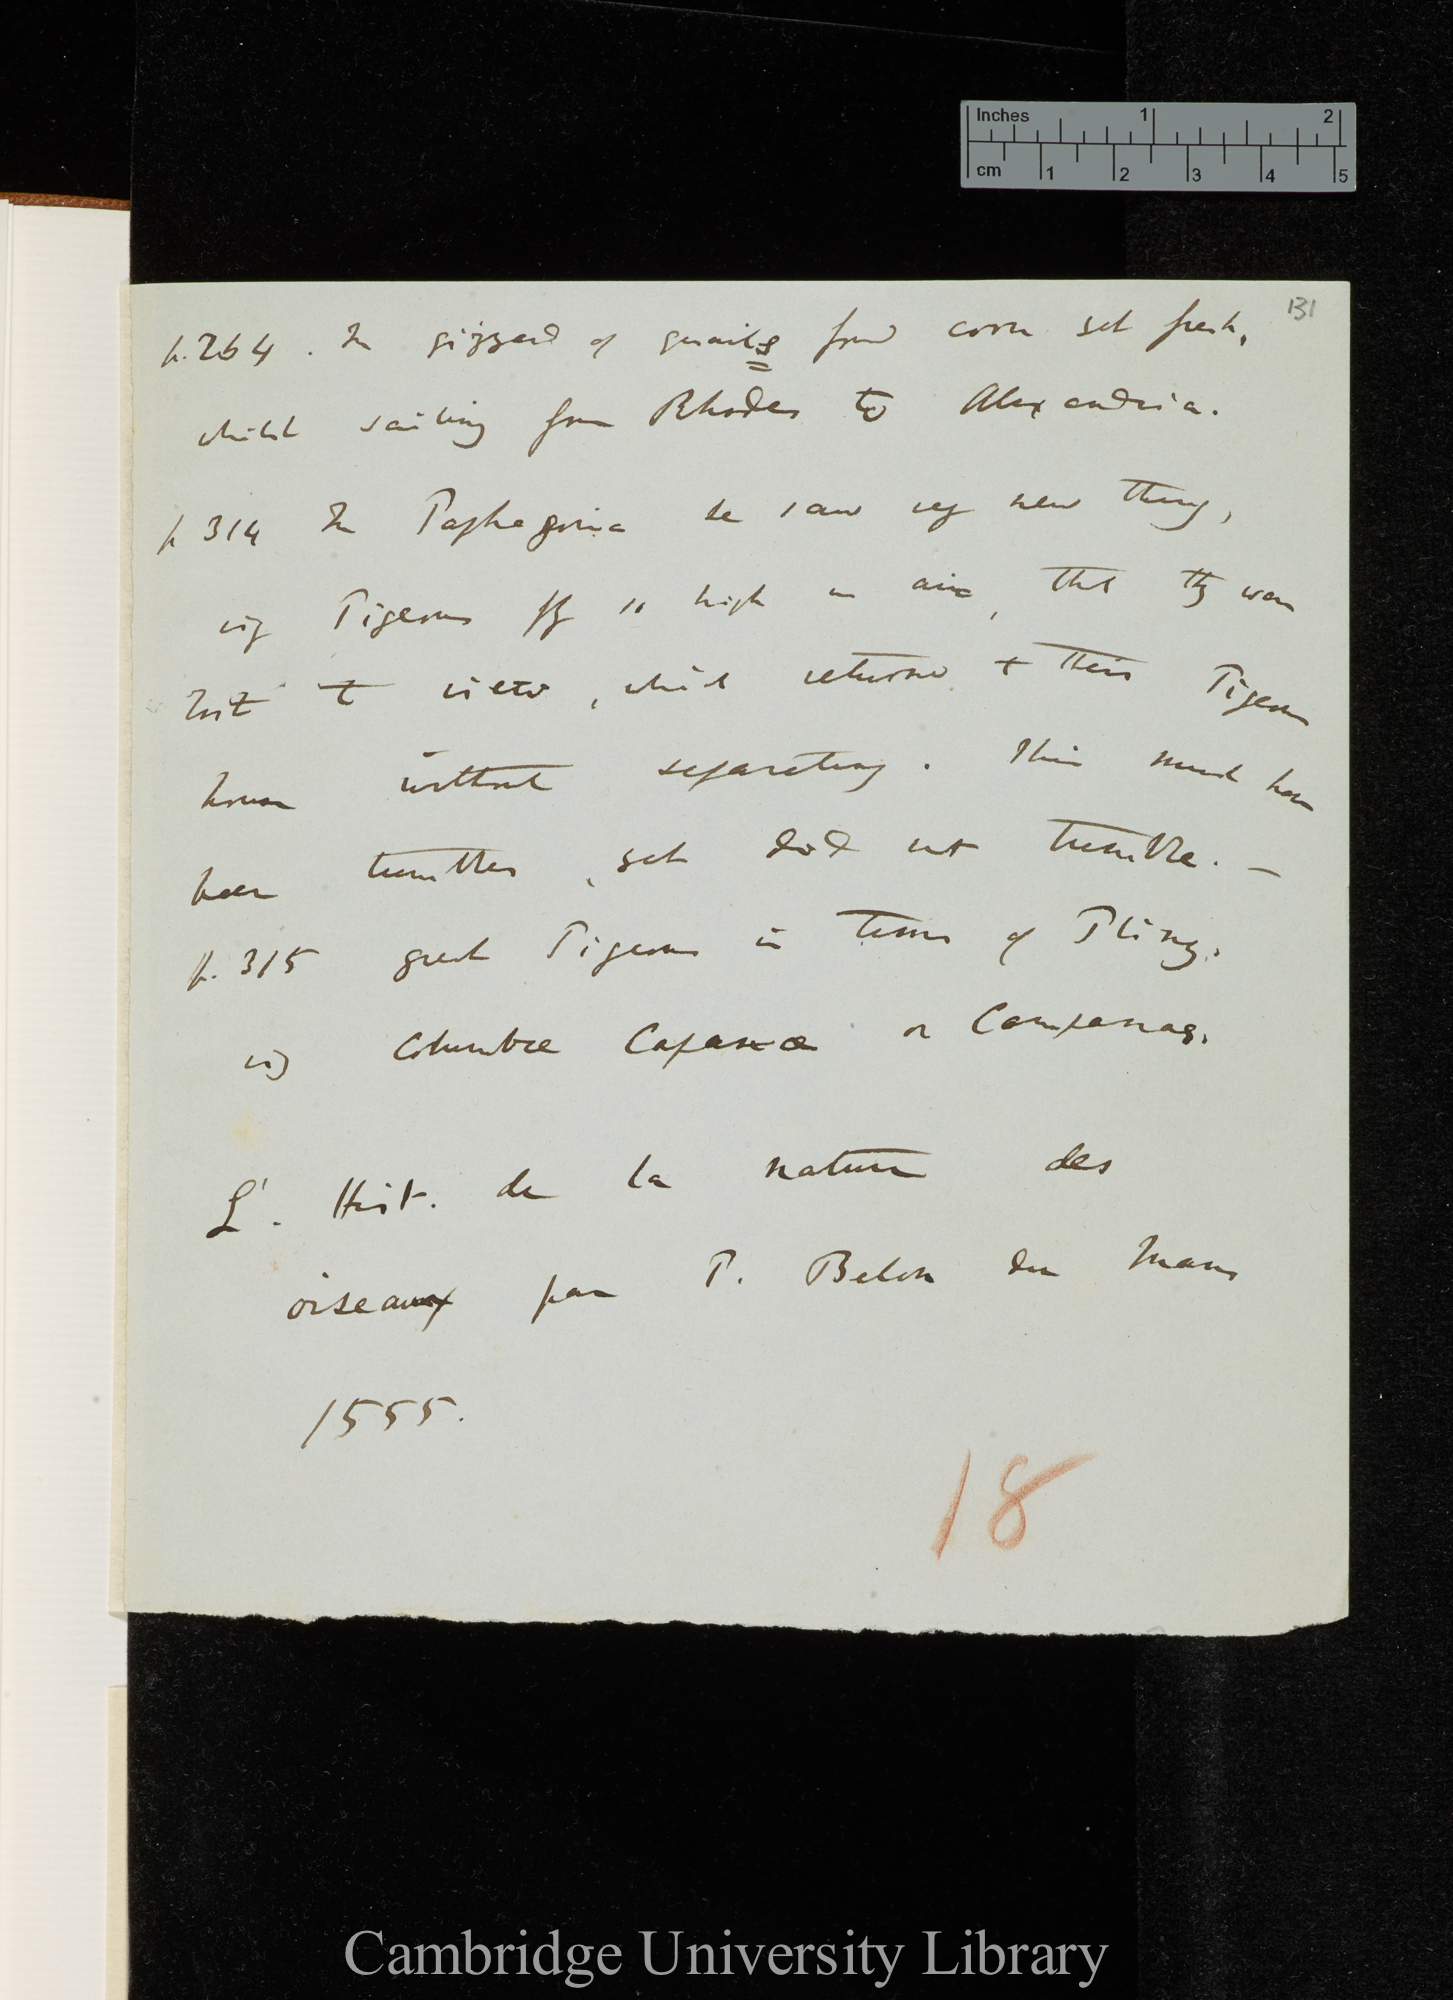 Inches 1 2
cm 1 2 3 4 5
131
p. 264. In gizzard of quails found corn still fresh,
whilst sailing from Rhodes to Alexandria.
p 314 In Paphagonia he saw very new thing,
viz Pigeons fly so high in air, that they were
lost to view, which returned to their Pigeon
house without separating. This must have
been tumblers, yet did not tumble. —
p. 315 great Pigeons in times of Pliny,
viz Columbae Capanae or Campanae,
L'. Hist. de la nature des
oiseaux par P. Belon du Mans
1555.
18
Cambridge University Library